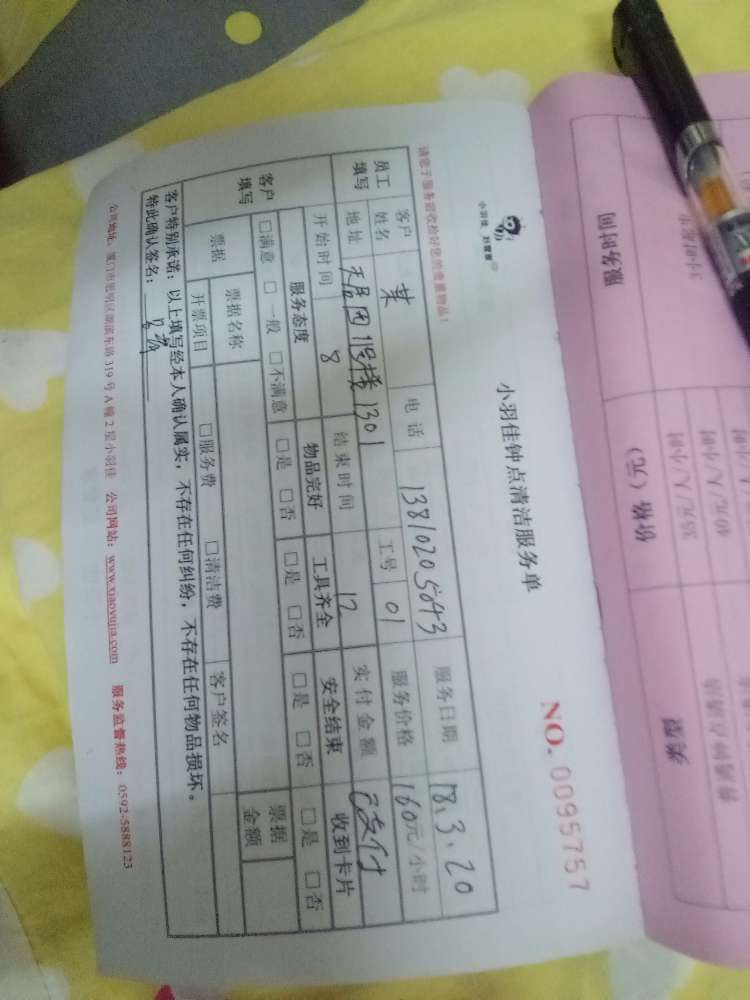 小羽佳 好管家
小羽佳钟点清洁服务单
NO. 0095757
请您于服务前收检好您的贵重物品！
员工填写 客户姓名 某 电话 13810205043 服务日期 18.3.20
地址 天居园118楼1301 工号 01 服务价格 160元/小时
开始时间 8 结束时间 12 实付金额 已支付
客户填写 服务态度 物品完好 工具齐全 安全结束 收到卡片
□满意 □一般 □不满意 □是 □否 □是 □否 □是 □否 □是 □否
票据 票据名称 票据金额
开票项目 □服务费 □清洁费 客户签名
客户特别承诺：以上填写经本人确认属实，不存在任何纠纷，不存在任何物品损坏。
特此确认签名：
公司地址：厦门市思明区莲溪东路319号A幢2层小羽佳 公司网站：www.xiaoyujia.com 服务监督热线：0592-5888123
服务时间
价格（元）
类型
3小时起步
35元/人/小时
40元/人/小时